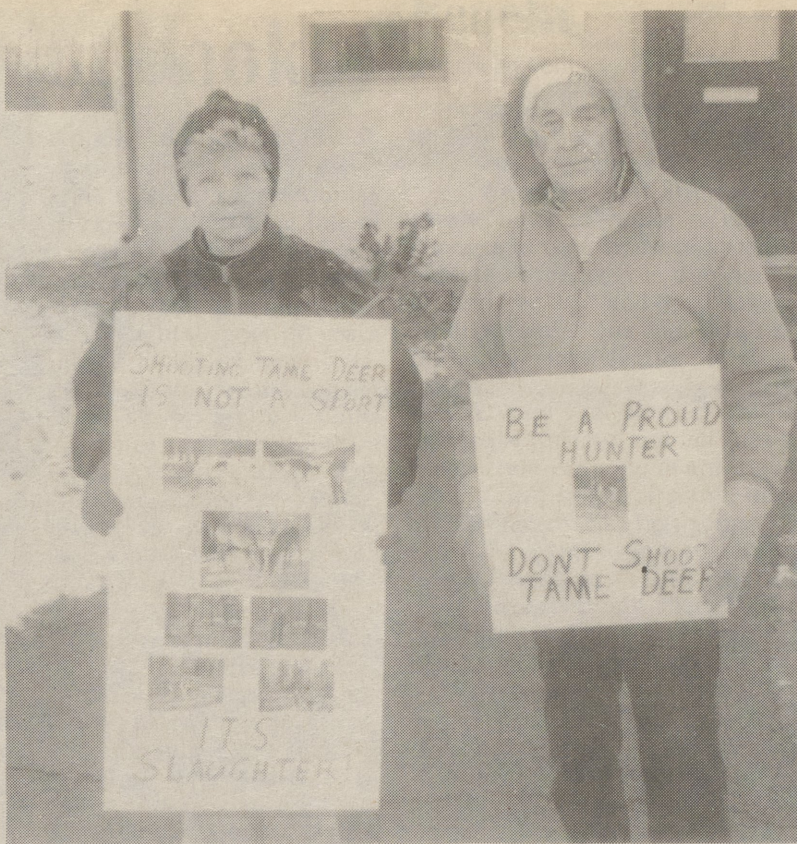 SHOOTING TAME DEER
IS NOT A SPORT
IT'S
SLAUGHTER!
BE A PROUD
HUNTER
DONT SHOOT
TAME DEER